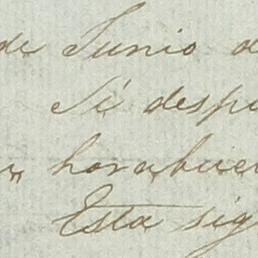 de Junio d
Si despu
n horabuen
Esta sig